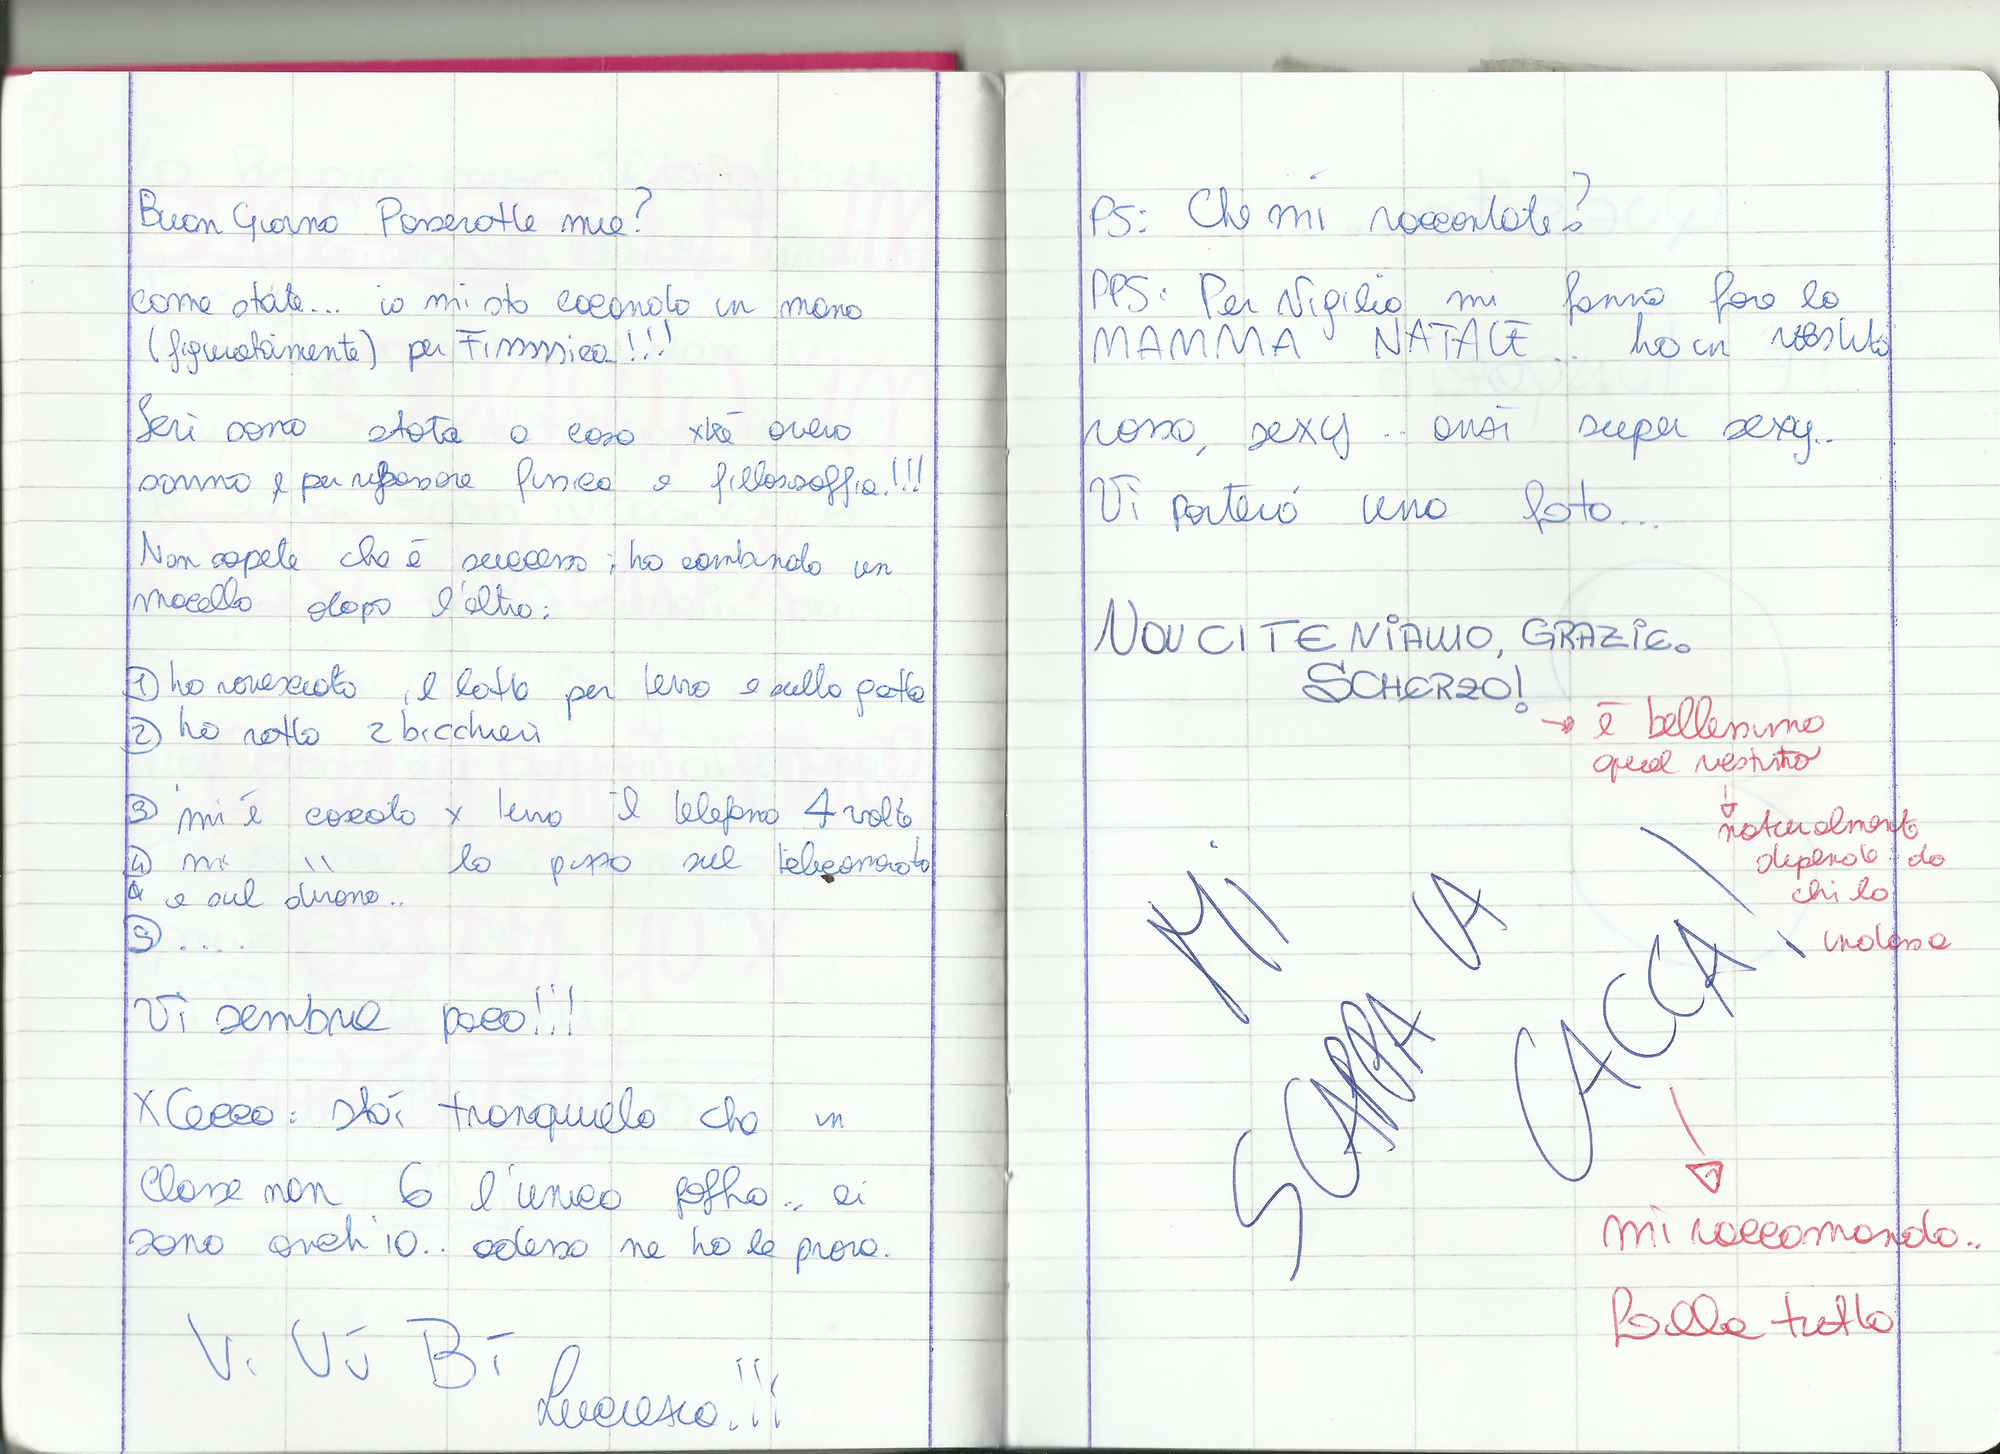 Buon Giorno Passerotte mie?
come state... io mi sto cacando in mano
(figuratamente) per Fisssica!!!
Ieri sono stata a casa xkè avevo
sonno e per ripassare fissica e fillossoffia!!!
Non sapete che è successo; ho combinato un
macello dopo l'altro:
① ho rovesciato il latte per terra e sulla gatta
② ho rotto 2 bicchieri
③ mi è cascato x terra il telefono 4 volte
④ mi " la pizza sul telecomando
e sul divano..
⑤ ....
Vi sembra poco!!!
X Cecco: stai tranquillo che in
classe non 6 l'unico goffo.. ci
sono anch'io.. adesso ne ho le prove.
Vi Vù Bi
Lucrezia!!!
PS: Che mi raccontate?
PPS: Per Vigilia mi fanno fare la
MAMMA NATALE.. ho un vestito
rosso, sexy.. anzi super sexy..
Vi porterò una foto...
NON CI TENIAMO, GRAZIE.
SCHERZO!
→ è bellissimo
quel vestito
↓
naturalmente
dipende da
chi lo
indossa
MI
SCAPPA LA
CACCA!
mi raccomando..
falla tutta